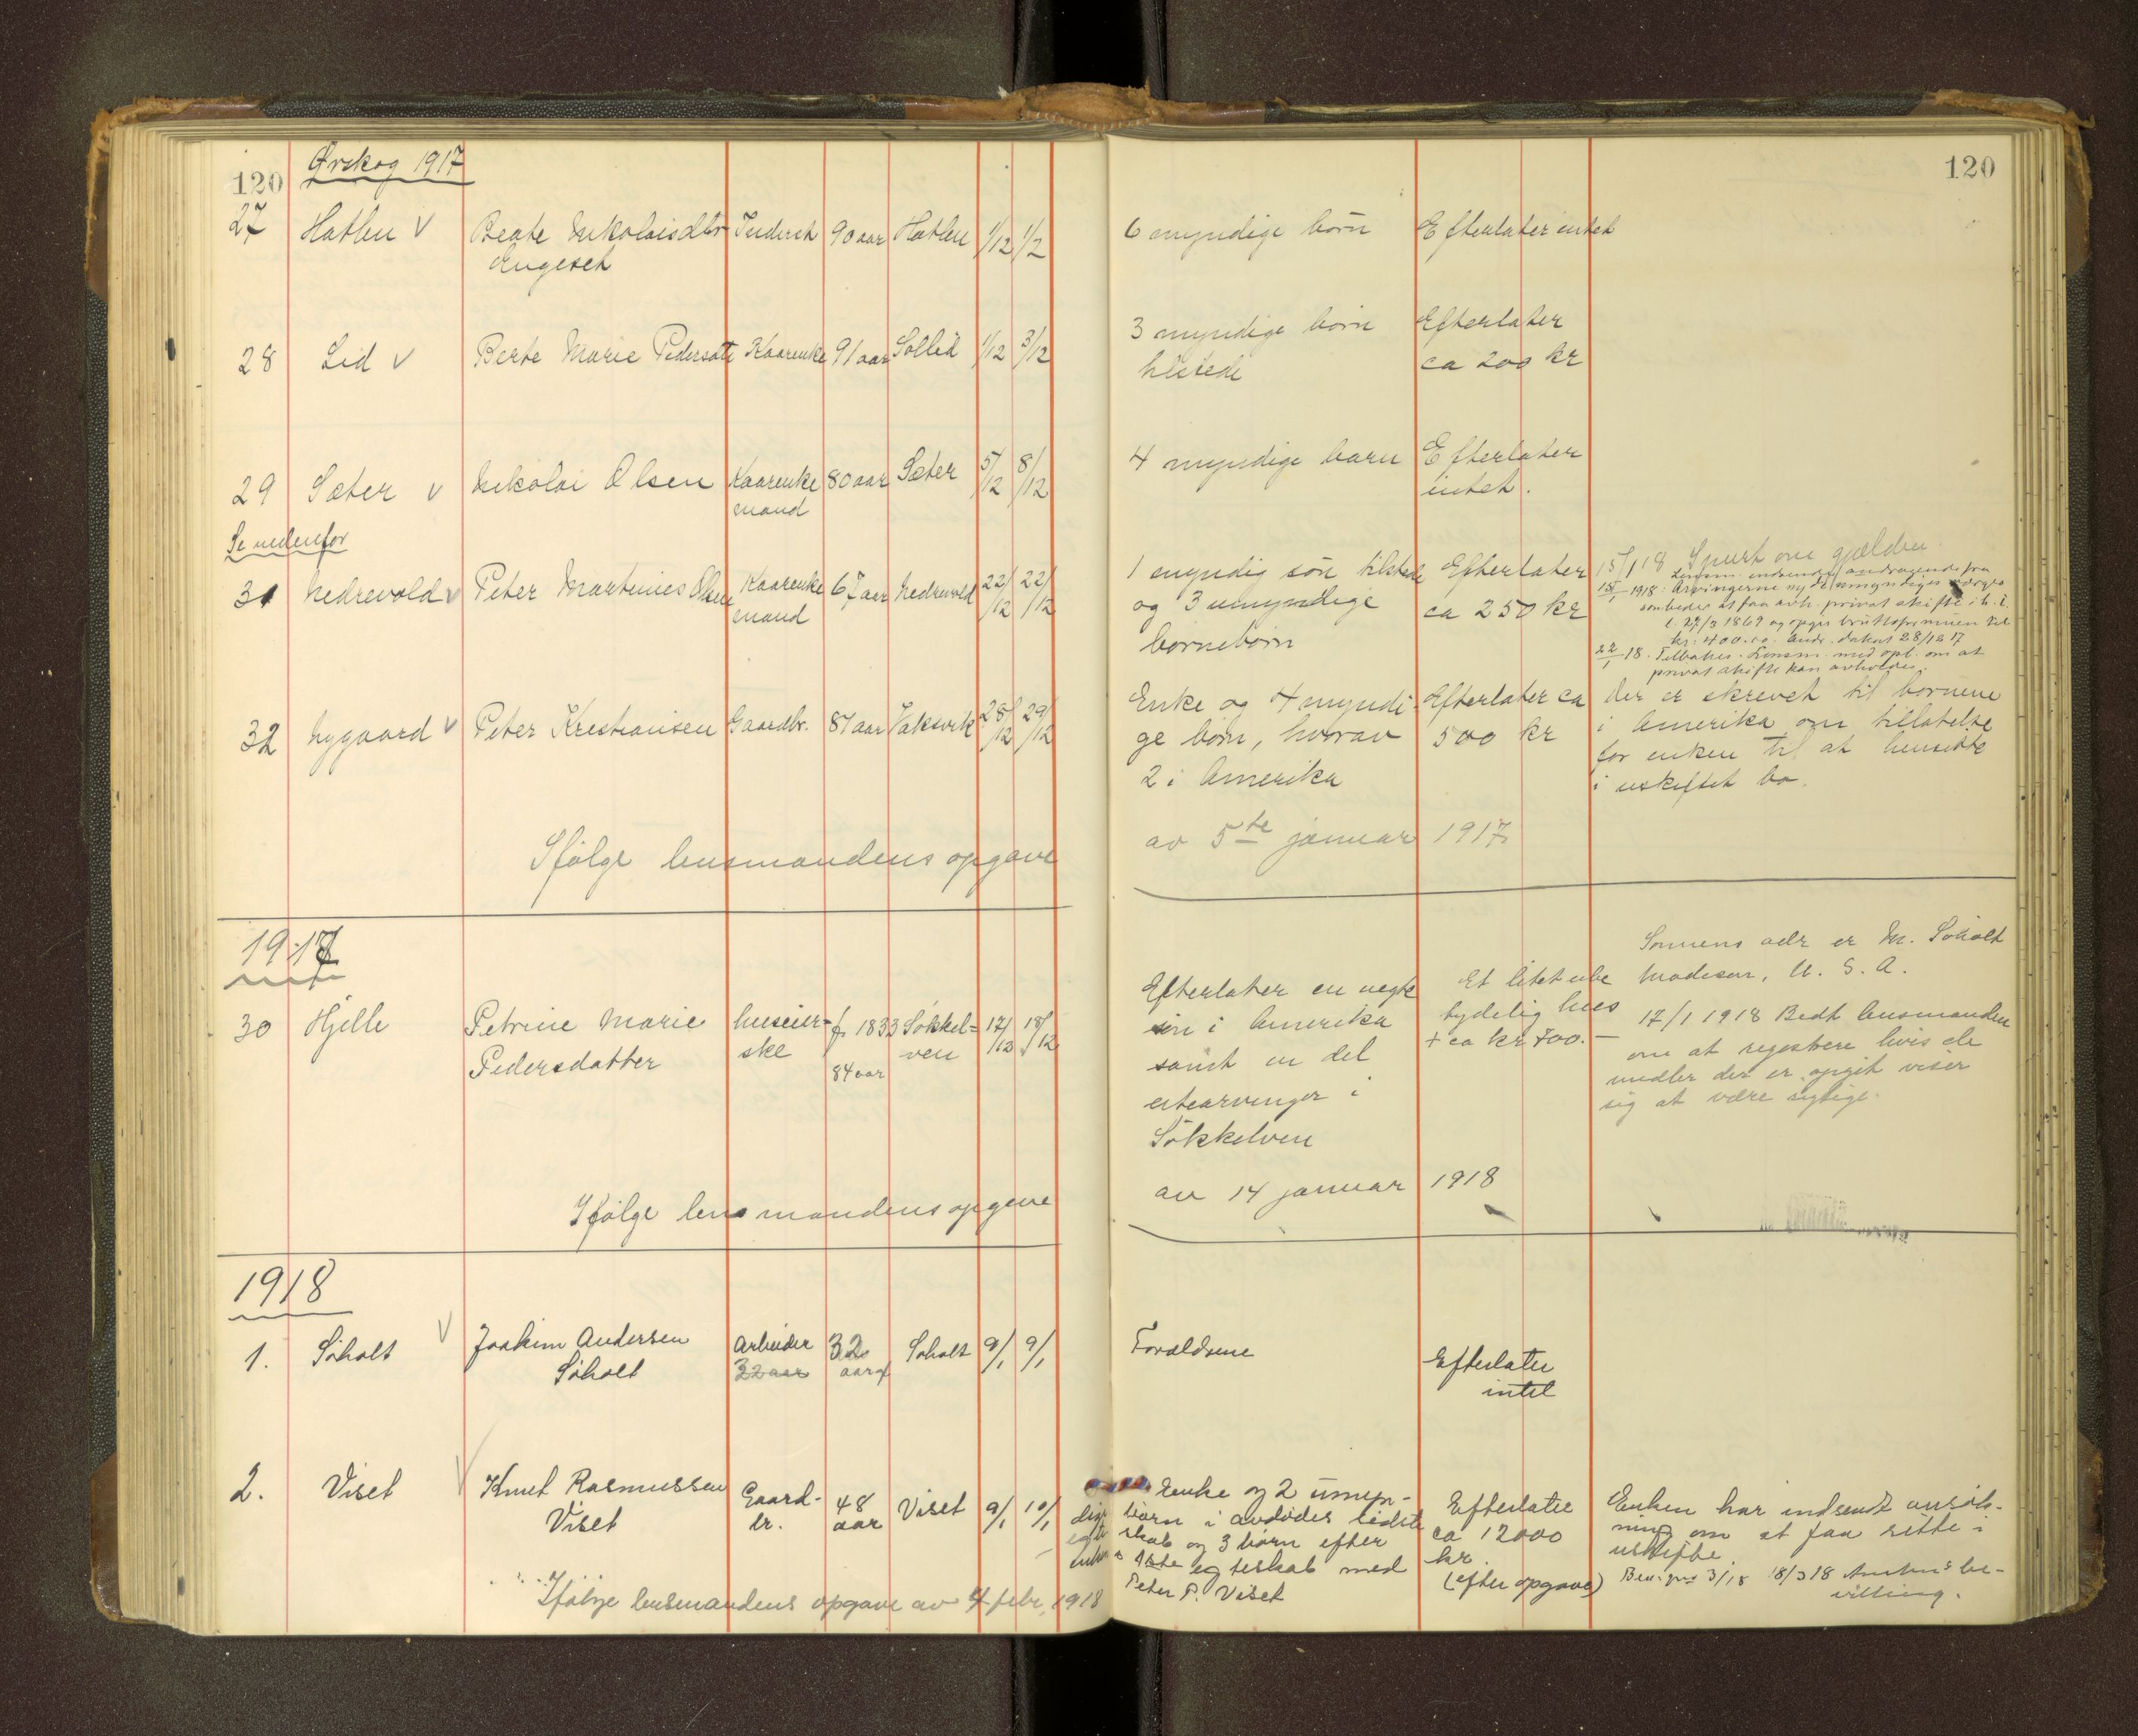 120 Ørskog 1917 120
27 Hatlen V Beate Nikolaisdtr Inderst 90 aar Hatlen 1/12 1/2 6 myndige børn Efterlater intet
Engeset
28 Lid V Berte Marie Pedersdtr Kaarenke 91 aar Sollid 1/12 3/12 3 myndige børn Efterlater
tilstede ca 200 kr
29 Sæter V Nikolai Olsen Kaarenke 80 aar Sæter 5/12 8/12 4 myndige barn Efterlater
mand intet.
Se nedenfor
31 Nedrevold V Peter Martinus Olsen Kaarenke 67 aar Nedrevold 22/12 22/12 1 myndig søn tilstede Efterlater
mand og 3 umyndige ca 250 kr
børnebørn
15/1 18 Spurt om gjælden.
Lensm. indsender andragende fra
15/1 1918. Arvingerne og de umyndiges værges
som beder at faa avh. privat skifte i h. t.
l. 27/3 1869 og opgir bruttoformuen til
kr. 400.00. Andr. datert 28/12 17
22/1 18. Tilbakes. Lensm. med opl. om at
privat skifte kan avholdes.
32 Nygaard V Peter Kristiansen Gaardbr. 87 aar Vaksvik 28/12 29/12 Enke og 4 myndi- Efterlater ca
ge børn, hvorav 500 kr
2 i Amerika
der er skrevet til børnene
i Amerika om tillatelse
for enken til at hensitte
i uskiftet bo.
Ifølge lensmandens opgave av 5te januar 1917
1917
30 Hjelle Petrine Marie huseier- f. 1833 Søkkel- 17/12 18/12 Efterlater en uegte Et litet ube
Pedersdatter ske 84 aar ven søn i Amerika tydelig hus
samt en del + ca kr 700.-
utearvinger i
Søkkelven
Sønnens adr er M. Søholt
Madison, U. S. A.
17/1 1918 Bedt lensmanden
om at registrere hvis de
midler der er opgit viser
sig at være rigtige.
Ifølge lensmandens opgave av 14 januar 1918
1918
1. Søholt V Joakim Andersen Arbeider 32 Søholt 9/1 9/1 Forældrene Efterlater
Søholt 32 aar aar intet
2. Viset V Knut Rasmussen Gaard- 48 Viset 9/1 10/1 Enke og 2 umyn- Efterlater
Viset br. aar dige børn i avdødes sidste ca 12000
egteskab og 3 børn efter kr.
enkens 1ste egteskab med (efter opgave)
Peter P. Viset
Enken har indsendt ansøk-
ning om at faa sitte i
uskifte.
3/18 18/3 18 Amtets be-
villing.
Ifølge lensmandens opgave av 4 febr. 1918